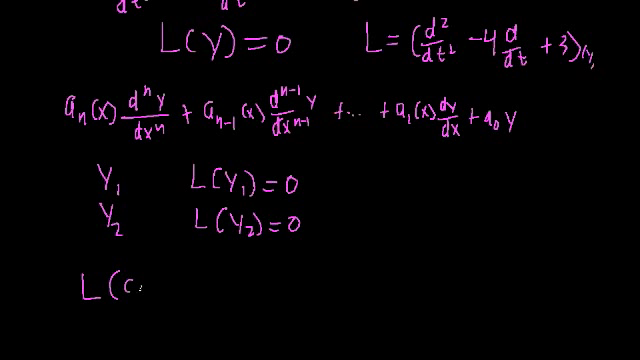 dt dt
L(y) = 0 L = (d²/dt² - 4 d/dt + 3)(y)
aₙ(x) dⁿy/dxⁿ + aₙ₋₁(x) dⁿ⁻¹y/dxⁿ⁻¹ + ... + a₁(x) dy/dx + a₀ y
y₁ L(y₁) = 0
y₂ L(y₂) = 0
L(c